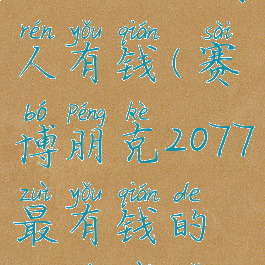 rén yǒu qián sài
人有钱(赛
bó Péng kè
博朋克2077
zuì yǒu qián de
最有钱的